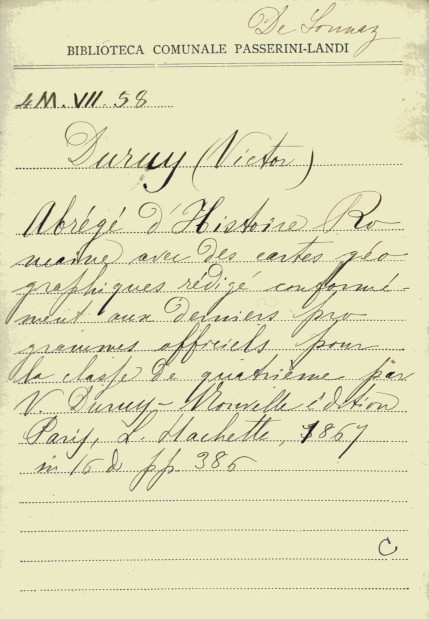 De Sonnaz
BIBLIOTECA COMUNALE PASSERINI-LANDI
4M. VII. 58
Duruy (Victor)
Abrégé d'Histoire Ro
maine avec des cartes géo
graphiques rédigé conformé-
ment aux derniers pro
grammes officiels pour
la classe de quatrième par
V. Duruy - Nouvelle édition
Paris, L. Hachette, 1867
in 16º pp. 386
C